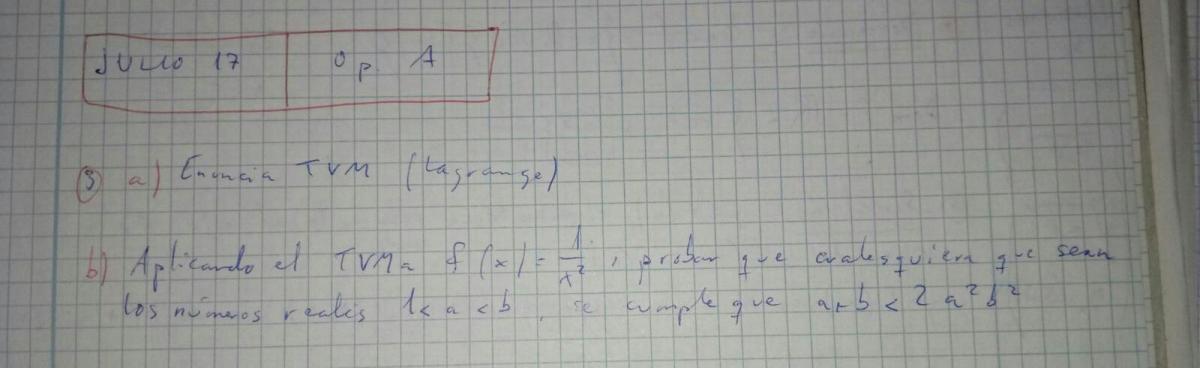 JULIO 17 Op. A
3 a) Enuncia TVM (Lagrange)
b) Aplicando el TVM a f(x) = 1/x², probar que cualesquiera que sean
los números reales 1 < a < b, se cumple que a + b < 2a²b²